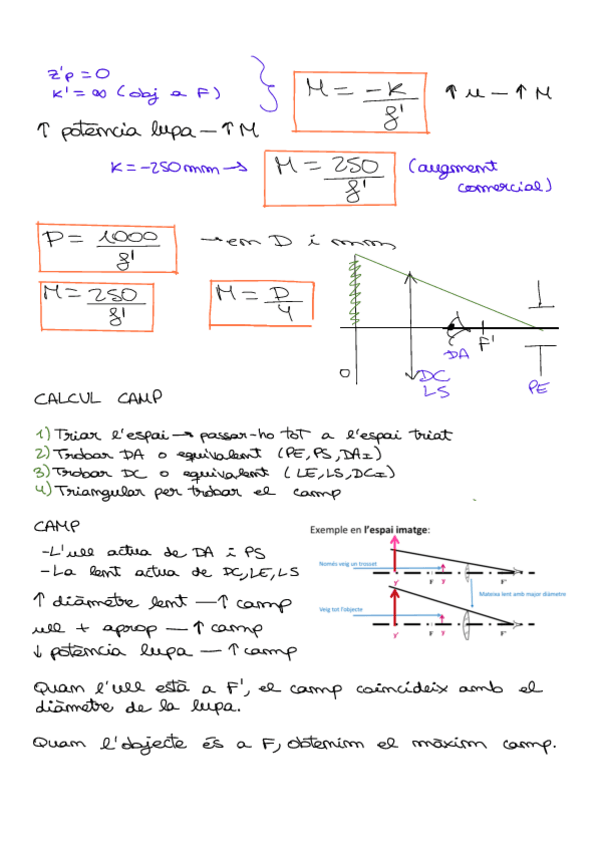 z'p = 0
k' = ∞ (obj a F)
M = -k / f'
↑ u — ↑ M
↑ potència lupa — ↑ M
k = -250mm → M = 250 / f' (augment comercial)
P = 1000 / f' → em D i mm
M = 250 / f'
M = D / 4
O
DC
LS
DA
F'
PE
CALCUL CAMP
1) Triar l'espai → passar-ho tot a l'espai triat
2) Trobar DA o equivalent (PE, PS, DAI)
3) Trobar DC o equivalent (LE, LS, DCI)
4) Triangular per trobar el camp
CAMP
- L'ull actua de DA i PS
- La lent actua de DC, LE, LS
↑ diàmetre lent — ↑ camp
ull + aprop — ↑ camp
↓ potència lupa — ↑ camp
Exemple en l'espai imatge:
Només veig un trosset
y' F y F'
Mateixa lent amb major diàmetre
Veig tot l'objecte
y' F y F'
Quan l'ull està a F', el camp coincideix amb el
diàmetre de la lupa.
Quan l'objecte és a F, obtenim el màxim camp.